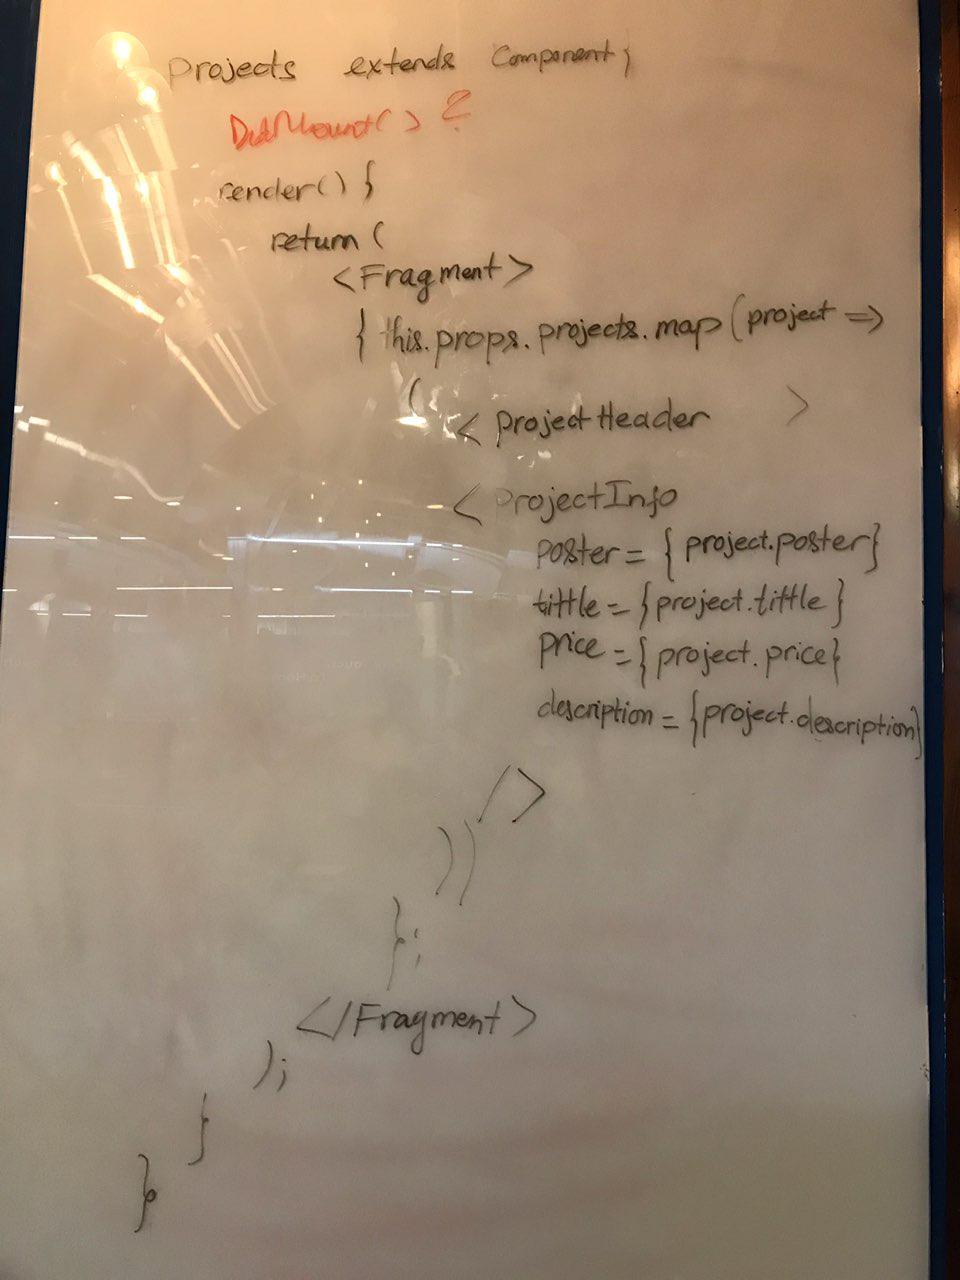 projects extends Component {
DidMount() ?
render() {
return (
<Fragment>
{ this.props.projects.map(project =>
(
< projectHeader >
< projectInfo
poster = { project.poster}
tittle = {project.tittle }
price = {project. price}
description = {project.description}
/>
))
};
</Fragment>
);
}
}